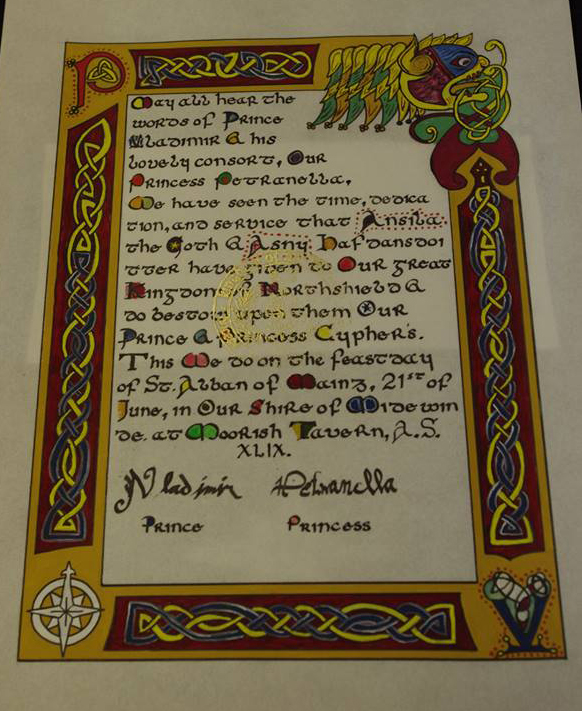 May all hear the
words of Prince
Vladimir & his
lovely consort, Our
Princess Petranella,
We have seen the time, dedica
tion, and service that Ansila
the Goth & Asny Hafdansdoi
tter have given to Our great
Kingdom of Northshield &
do bestow upon them Our
Prince & Princess Cypher's.
This We do on the feastday
of St. Alban of Mainz, 21st of
June, in Our Shire of Midewin
de. at Moorish Tavern, A.S.
XLIX.
Vladimir Petranella
Prince Princess
P
V